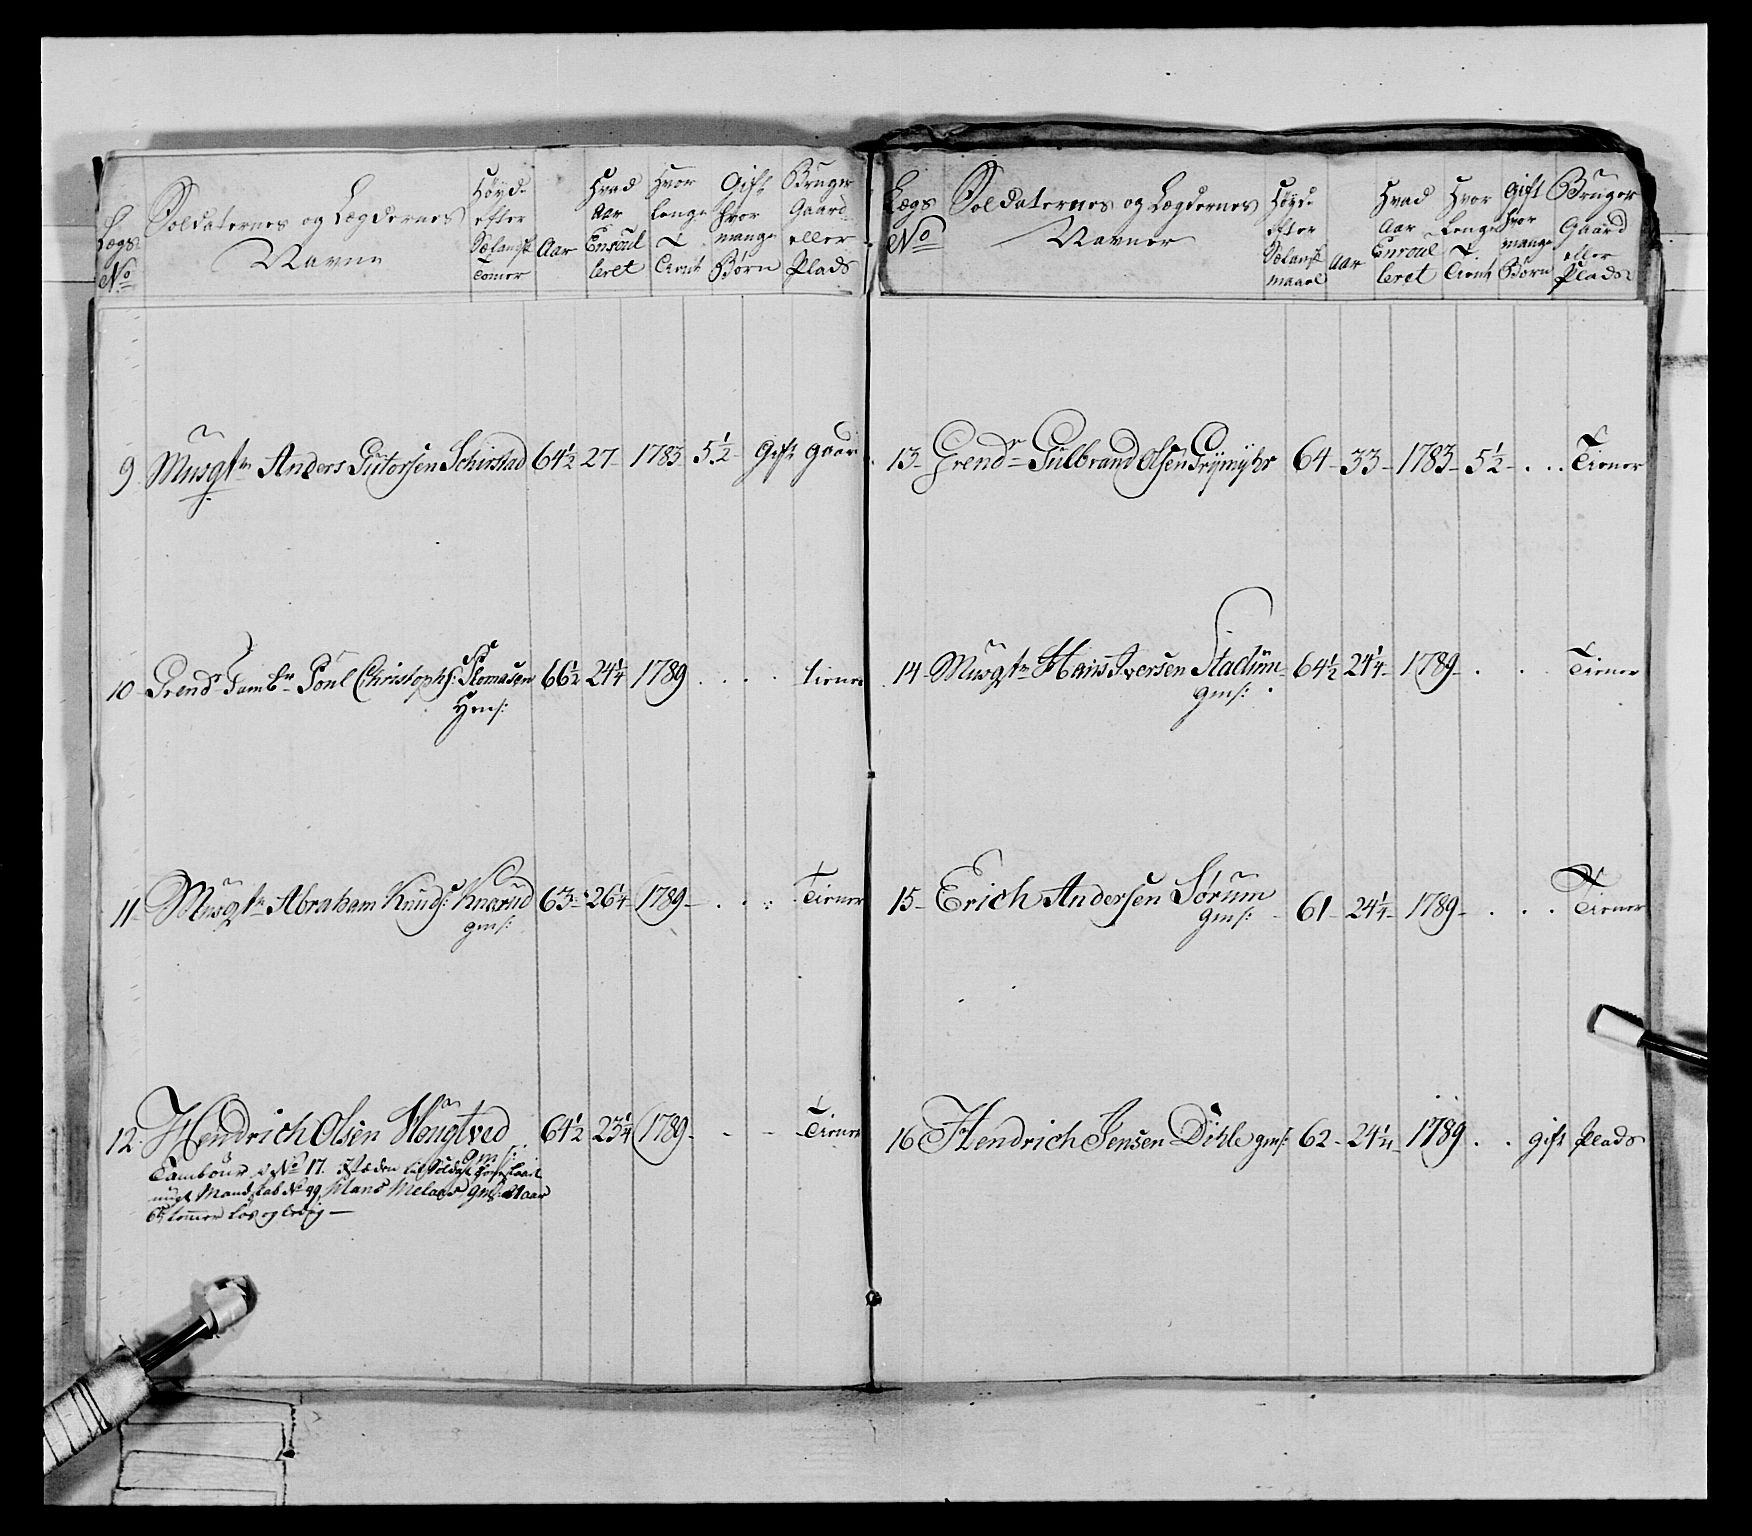 Lægs No
Soldaternes og Lægdernes Navne
Höyde efter Sælansk Tomer
Aar
Hvad Aar Enroulleret
Hvor lenge Tient
Gift hvor mange Börn
Bruger Gaard eller Plads
9 Musqt Anders Gutorsen Schirstad 64½ 27 1783 5½ Gift Gaar
10 Grend Tamb Poul Christophs: Thomasen 66½ 24¼ 1789 . . . . Tiener
Gms:
11 Musqt Abraham Knuds: Knarud 63 26¼ 1789 . . . Tiener
gms:
12 Hendrich Olsen Haugtved 64½ 23¼ 1789 - - Tiener
Gms:
Tambour i No 17. Stæden til Soldat foreslaaet
ungt Mandskab No 99, Hans Melaas gms: Aar
tommer løs og ledig —
Lægs No
Soldaternes og Lægdernes Navner
Höyde efter Sælansk maael
Aar
Hvad Aar Enroulleret
Hvor Lenge Tient
Gift hvor mange Börn
Bruger Gaard eller Plads
13 Grend Gulbrand Olsen 64 33 1783 5½ . . . Tiener
14 Musqt Hans Iversen Stadum 64½ 24¼ 1789 . . . Tiener
gms:
15 Erich Andersen Sørum 61 24¼ 1789 . . . Tiener
gms:
16 Hendrich Jensen Dihle gms: 62 24¼ 1789 . . gift Plads